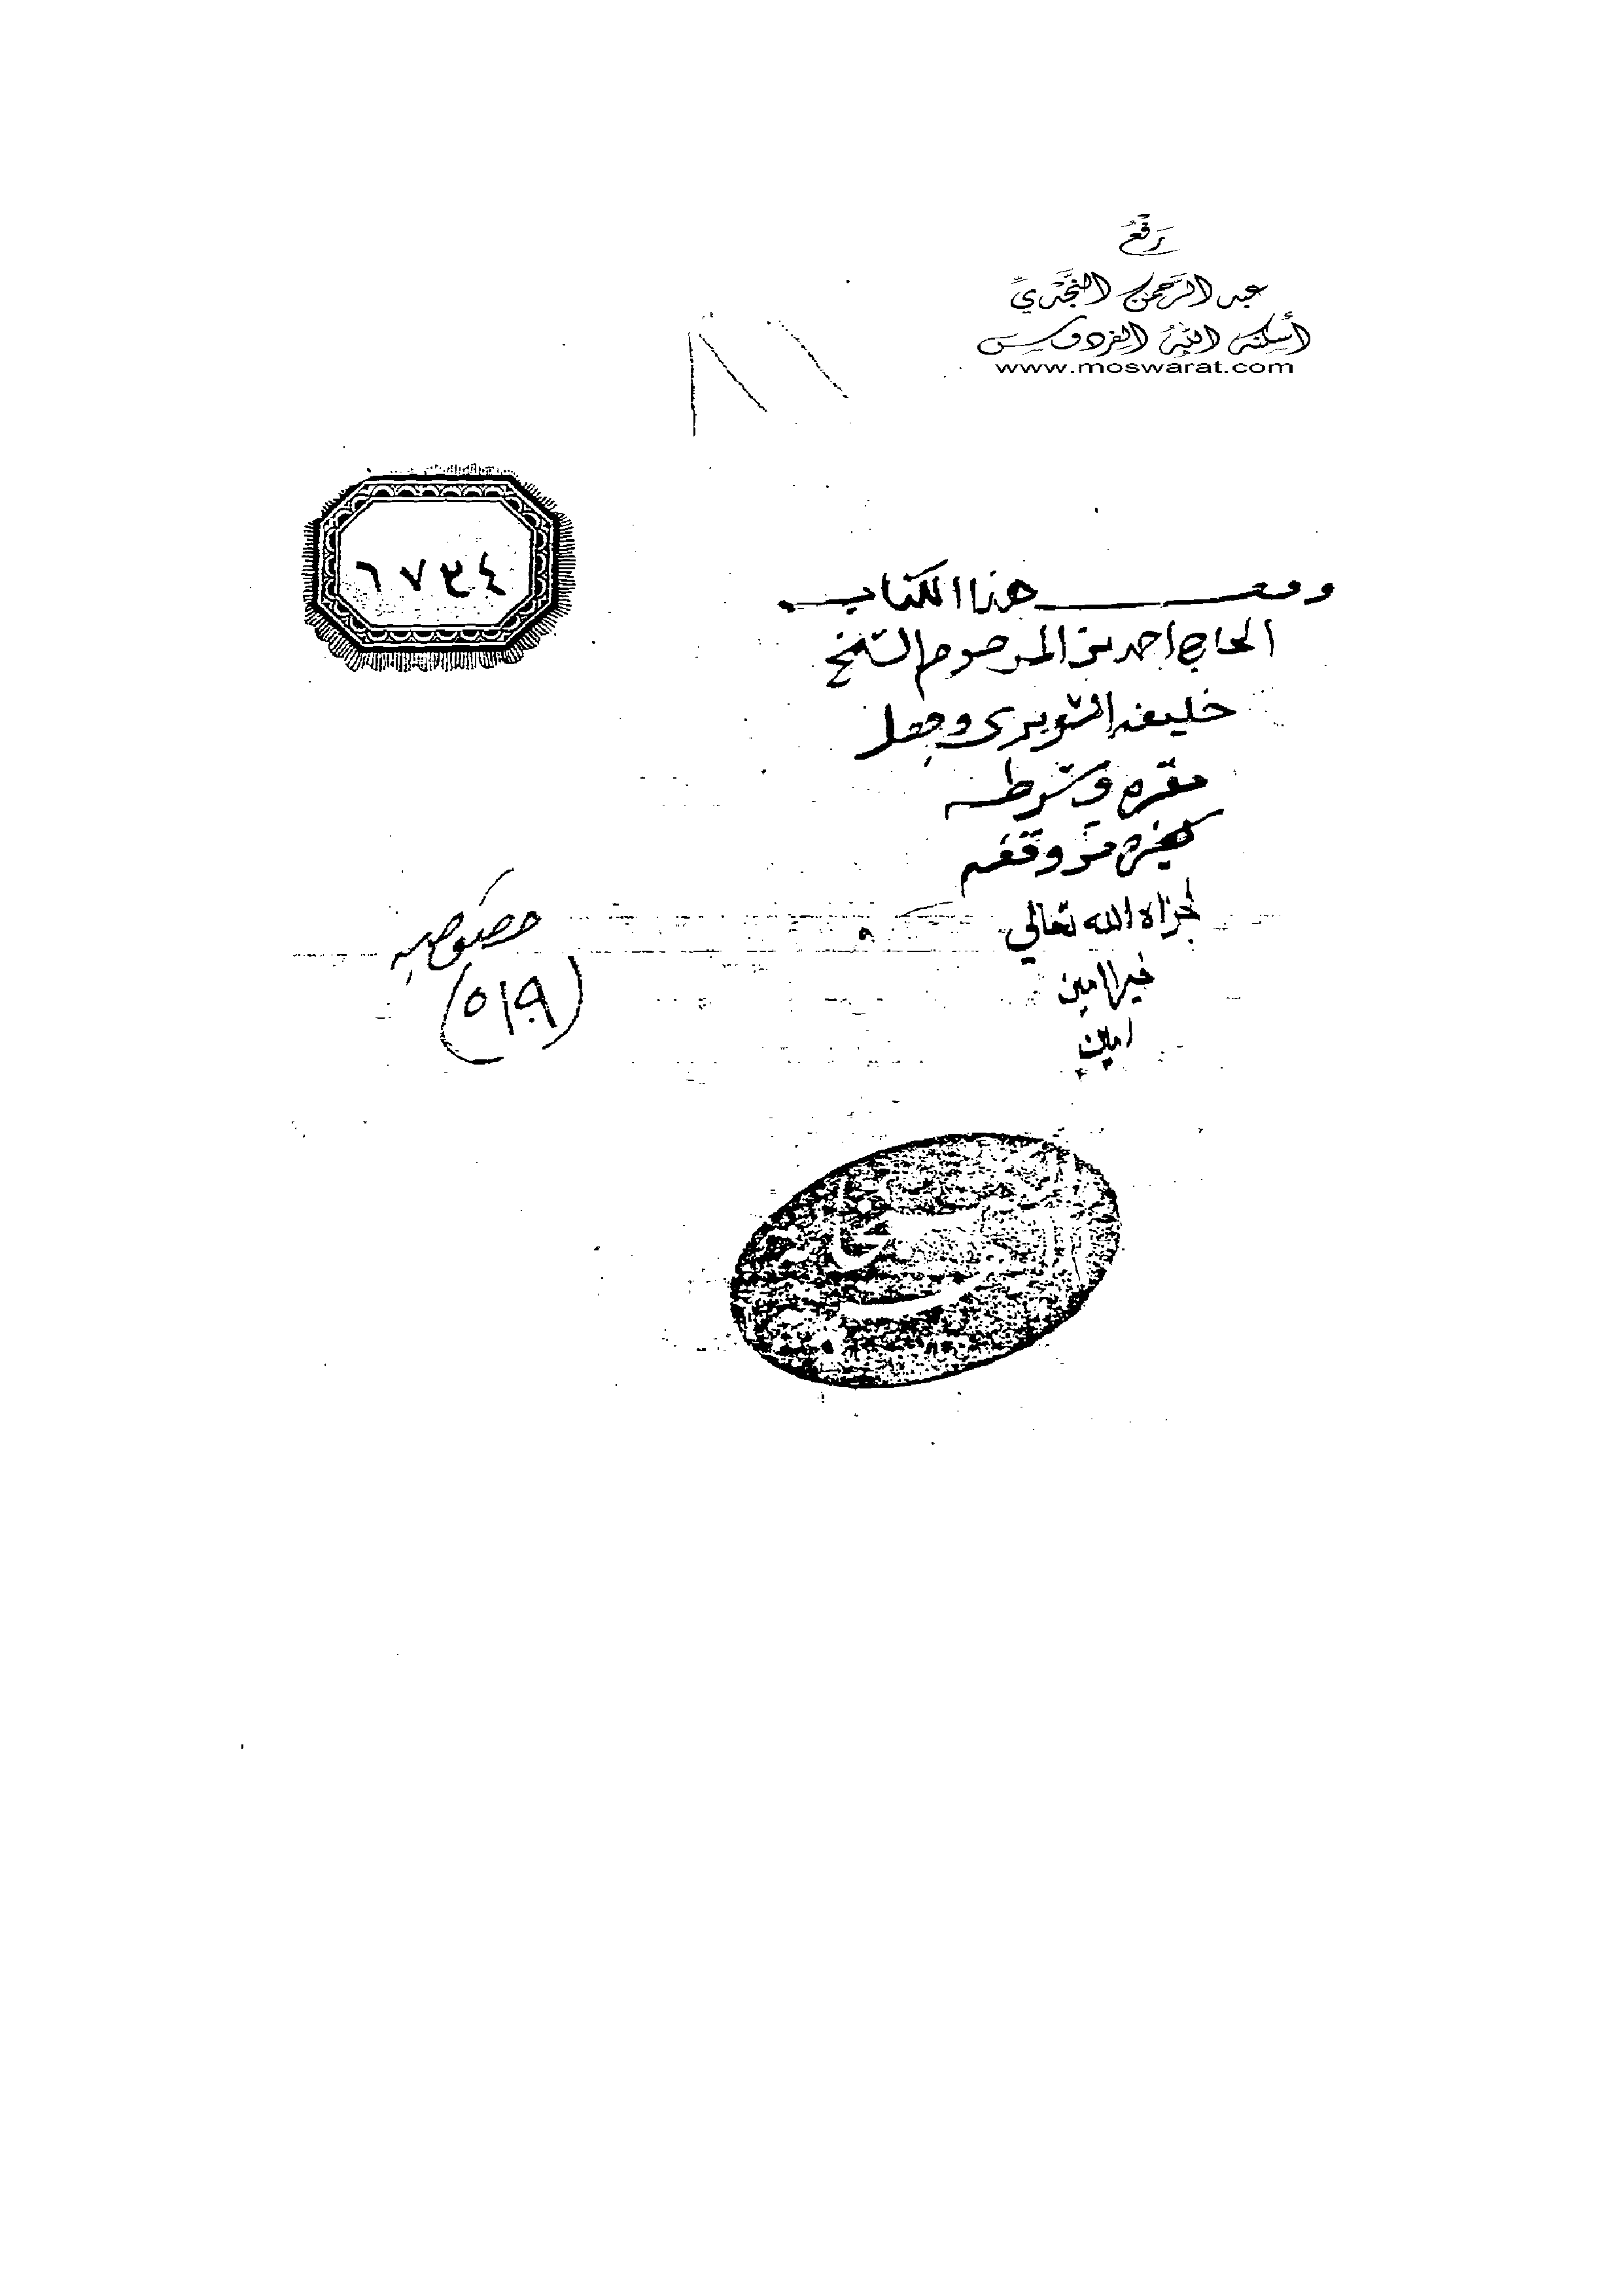 رفع
عبد الرحمن النجدي
أسكنه الله الفردوس
www.moswarat.com
٦٧٣٤
وقف هذا الكتاب
الحاج احمد بن المرحوم الشيخ
خليفه النويرى وجعل
مقره وشرطه
كغيره من وقفه
جزاه الله تعالي
خيرا امين
امين
خصوصيه
(٥١٩)